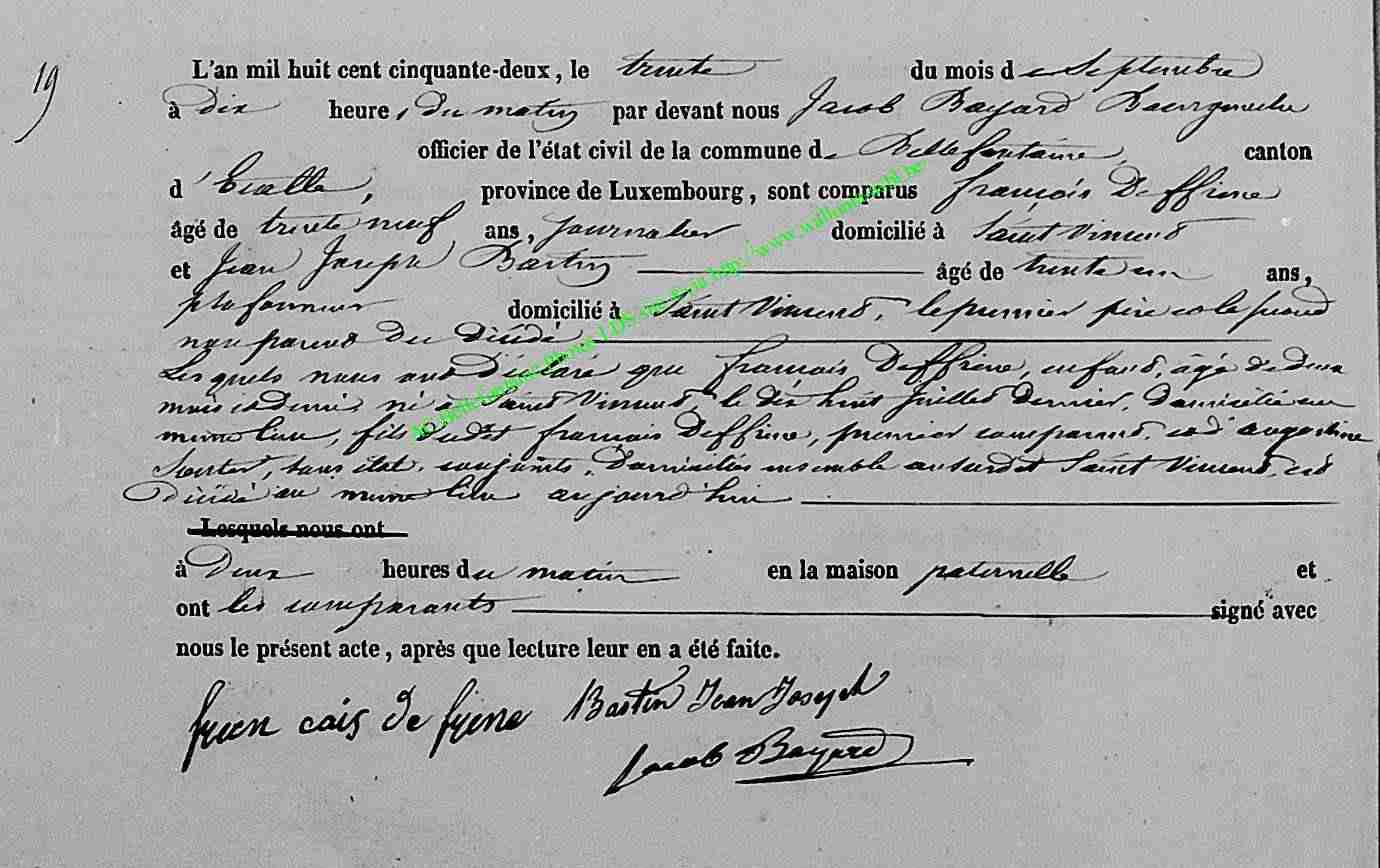 19
L'an mil huit cent cinquante-deux, le trente du mois de Septembre
à dix heures du matin par devant nous Jacob Bayard Bourgmestre
officier de l'état civil de la commune de Bellefontaine, canton
d'Etalle, province de Luxembourg, sont comparus françois Deffrene
âgé de trente neuf ans, journalier domicilié à Saint Vincent
et Jean Joseph Bastin âgé de trente un ans,
plafonneur domicilié à Saint Vincent, le premier père et le second
non parent du décédé
Lesquels nous ont Déclaré que françois Deffrene, enfant, âgé de deux
mois et demi, né à Saint Vincent, le dix huit juillet dernier, domicilié au
même lieu, fils dudit françois Deffrene, premier comparant, et d'augustine
sans état, conjoints, domiciliés ensemble au susdit Saint Vincent, est
Décédé au même lieu aujourd'hui
Lesquels nous ont
à Deux heures du matin en la maison paternelle et
ont les comparants signé avec
nous le présent acte, après que lecture leur en a été faite.
fren cais de frene Bastin Jean Joseph
Jacob Bayard